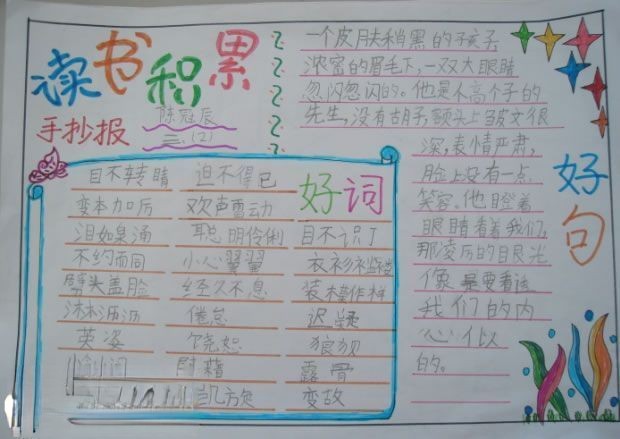 读书积累
手抄报
陈冠辰
三(2)
一个皮肤稍黑的孩子,
浓密的眉毛下,一双大眼睛
忽闪忽闪的。他是个高个子的
先生,没有胡子,额头上皱文很
深,表情严肃,
脸上没有一点
笑容。他瞪着
眼睛看着我们,
那凌厉的目光
像是要看透
我们的内
心似
的。
好句
好词
目不转睛 迫不得已
变本加厉 欢声雷动
泪如泉涌 聪明伶俐 目不识丁
不约而同 小心翼翼 衣衫褴褛
劈头盖脸 经久不息 装模作样
沸沸 倦怠 迟疑
英姿 饶恕 狼狈
露骨
变故